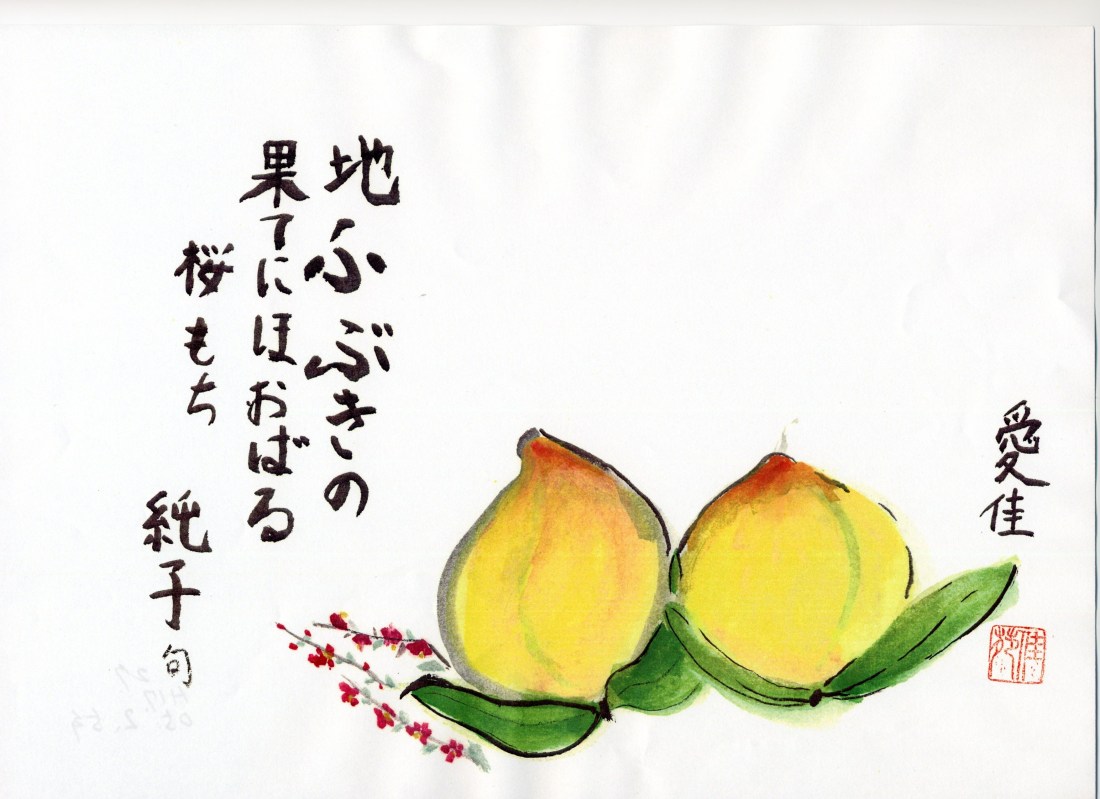 愛佳
地ふぶきの
果てにほおばる
桜もち
純子句